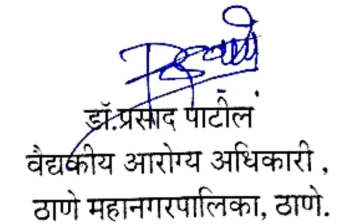 डॉ.प्रसाद पाटील
वैद्यकीय आरोग्य अधिकारी ,
ठाणे महानगरपालिका, ठाणे.